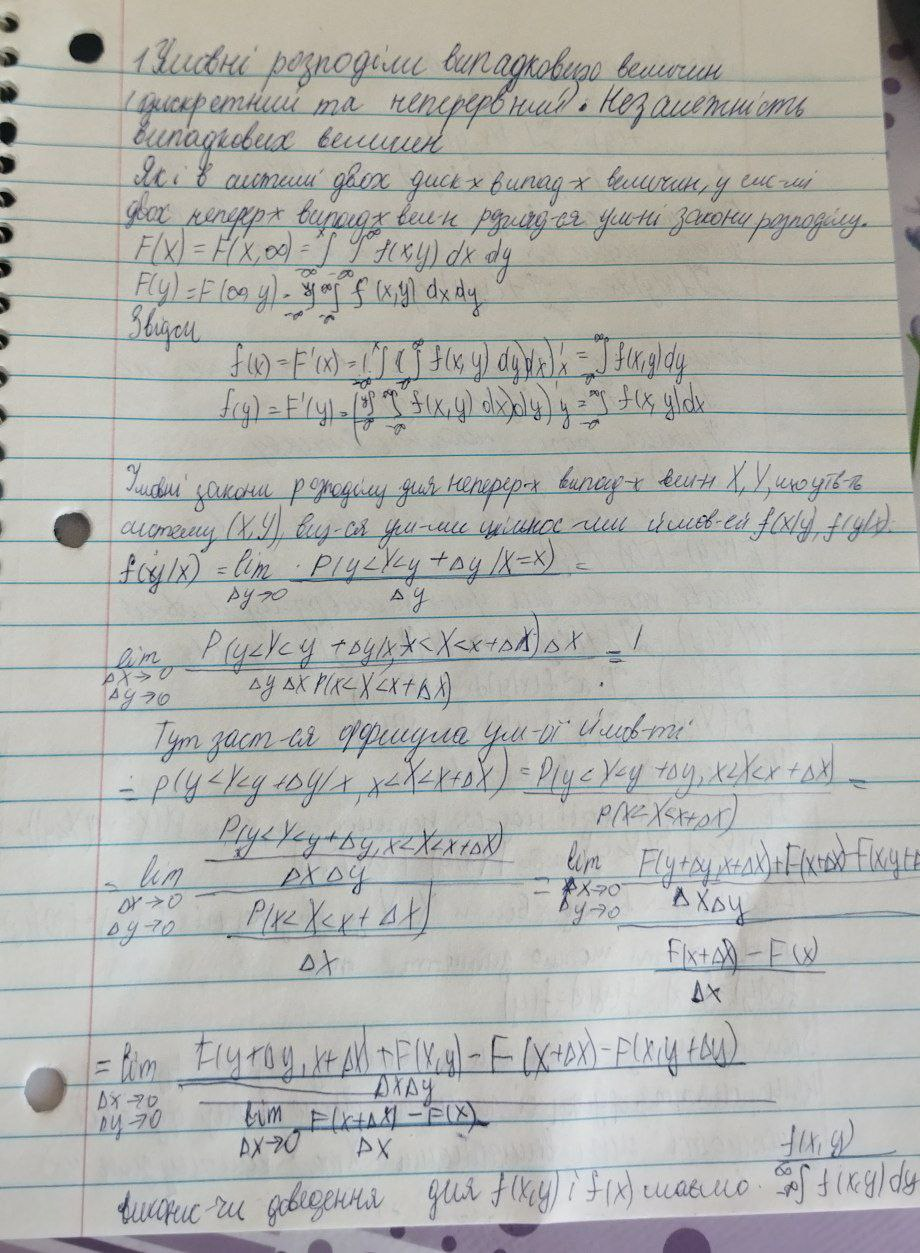 1 Умовні розподіли випадкового величин
(дискретний та неперервний). Незалежність
випадкових величин
Як і в системі двох диск-х випад-х величин, у сис-мі
двох неперер-х випад-х вел-н розгляд-ся ум-ні закони розподілу.
F(x) = F(x,∞) = ∫_{-∞}^{x} ∫_{-∞}^{∞} f(x,y) dx dy
F(y) = F(∞,y) = ∫_{-∞}^{y} ∫_{-∞}^{∞} f(x,y) dx dy
Звідси
f(x) = F'(x) = (∫_{-∞}^{x} (∫_{-∞}^{∞} f(x,y) dy)dx)'x = ∫_{-∞}^{∞} f(x,y)dy
f(y) = F'(y) = (∫_{-∞}^{y} ∫_{-∞}^{∞} f(x,y) dx)dy)'y = ∫_{-∞}^{∞} f(x,y)dx
Умовні закони розподілу для неперер-х випад-х вел-н X, Y, що утв-ть
систему (X,Y), виз-ся ум-ми щільнос-ми ймов-ей f(x/y), f(y/x).
f(y/x) = lim_{Δy→0} P(y<Y<y + Δy/X=x) / Δy =
lim_{Δx→0 Δy→0} P(y<Y<y + Δy/x, x<X<x+ΔX) ΔX / Δy Δx P(x<X<x+Δx) = !
Тут заст-ся формула ум-ої ймов-ті
= P(y<Y<y+Δy/x, x<X<x+ΔX) = P(y<Y<y+Δy, x<X<x+ΔX) / P(x<X<x+ΔX) =
= lim_{Δx→0 Δy→0} (P(y<Y<y+Δy, x<X<x+ΔX) / ΔXΔy) / (P(x<X<x+ΔX) / ΔX) = lim_{Δx→0 Δy→0} (F(y+Δy, x+ΔX)+F(x+ΔX)-F(x,y+Δ / ΔXΔy) / (F(x+ΔX) - F(x) / Δx)
= lim_{Δx→0 Δy→0} (F(y+Δy, x+ΔX) + F(x,y) - F(x+ΔX) - F(x,y+Δy) / ΔXΔy) / (lim_{Δx→0} F(x+ΔX) - F(x) / ΔX)
викорис-чи доведення для f(x,y) і f(x) маємо. f(x,y) / ∫_{-∞}^{∞} f(x,y) dy